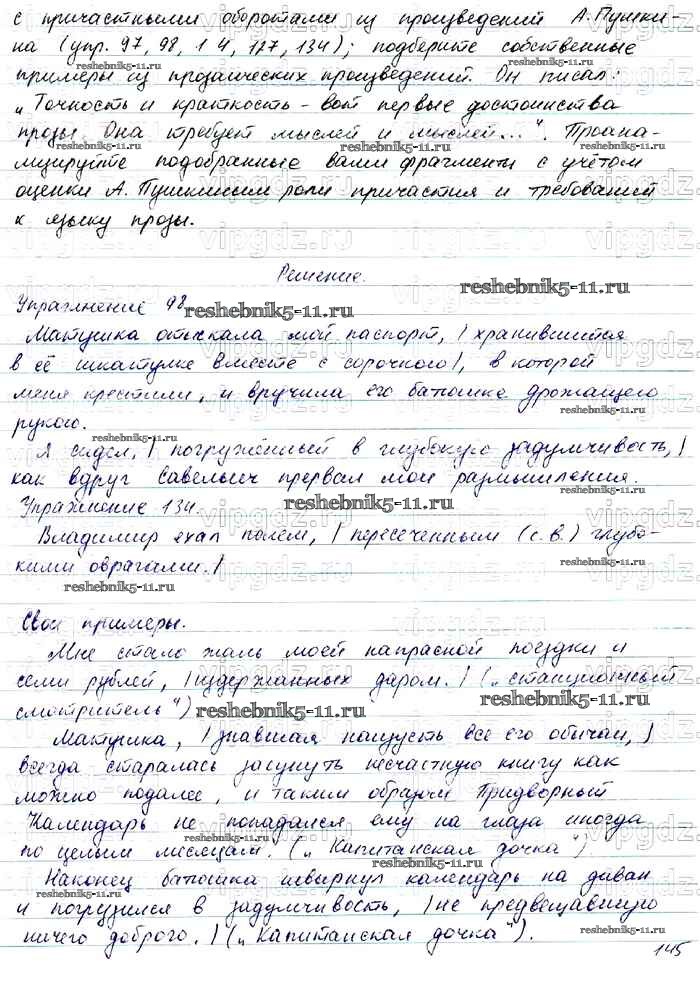 с причастными оборотами из произведений А. Пушки-
на (упр. 97, 98, 1 4, 127, 134); подберите собственные
примеры из прозаических произведений. Он писал:
„Точность и краткость – вот первые достоинства
прозы. Она требует мыслей и мыслей...". Проана-
лизируйте подобранные вами фрагменты с учётом
оценки А. Пушкиным роли причастия и требований
к языку прозы.
Решение.
Упражнение 98
Матушка отыскала мой паспорт, | хранившийся
в её шкатулке вместе с сорочкою |, в которой
меня крестили, и вручила его батюшке дрожащею
рукою.
Я сидел, | погружённый в глубокую задумчивость, |
как вдруг Савельич прервал мои размышления.
Упражнение 134.
Владимир ехал полем, | пересеченным (с.в.) глубо-
кими оврагами. |
Свои примеры.
Мне стало жаль моей напрасной поездки и
семи рублей, | издержанных даром. | („Станционный
смотритель")
Матушка, | знавшая наизусть все его обычаи, |
всегда старалась засунуть несчастную книгу как
можно подалее, и таким образом Придворный
Календарь не попадался ему на глаза иногда
по целым месяцам. („Капитанская дочка")
Наконец батюшка швырнул календарь на диван
и погрузился в задумчивость, | не предвещавшую
ничего доброго. | („Капитанская дочка").
145